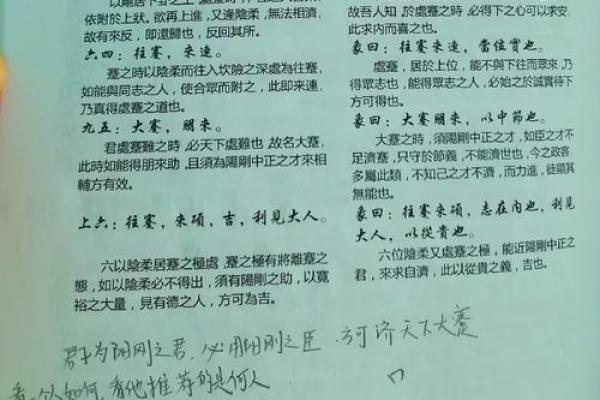 依附於上狀。欲再上進，又逢陰柔，無法相濟，
故有來反，即還歸也，反回其所。
六四：往蹇，來連。
蹇之時以陰柔而往入坎險之深處為往蹇，
如能與同志之人，使合眾而附之，此即來連，
乃真得處蹇之道也。
九五：大蹇，朋來。
君處蹇難之時，必天下處難也，故名大蹇，
此時如能得朋來助，且須為陽剛中正之才來相
輔方有效。
上六：往蹇，來碩，吉，利見大人。
六以陰柔居蹇之極處，蹇之極有將離蹇之
態，如以陰柔必不得出，須有陽剛之助，以寬
裕之大量，見有德之人，方可為吉。
故吾人知，於處蹇之時，必得下之心可以求安，
此求內而喜之也。
象曰：往蹇來連，當位實也。
處蹇，居於上位，能不與下往而眾來，乃
得眾志也，能得眾志之人，必始之於誠實待下
方可得也。
象曰：大蹇朋來，以中節也。
大蹇之時，須陽剛中正之才，如臣之才不
足濟蹇，只守於節義，不能濟世也，今之政客
多屬此類，不知己之才不濟，而力進，徒顯其
無能也。
象曰：往蹇來碩，志在內也，利見
大人，以從貴也。
六位陰柔又處蹇之極，能近陽剛中正之
君，來求自濟，此以從貴之義，吉也。
君子为阳刚之君，必用阳刚之臣，方可济天下大蹇
看一个人如何，看他推荐的是何人